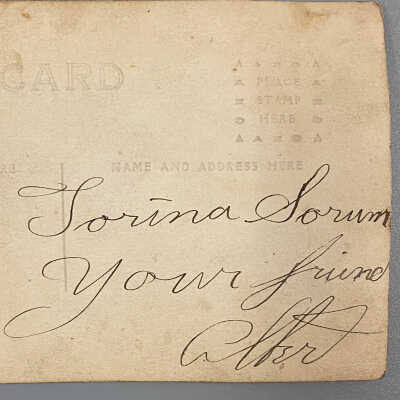 CARD
PLACE
STAMP
HERE
NAME AND ADDRESS HERE
Sorina Sorum
Your friend
Albert